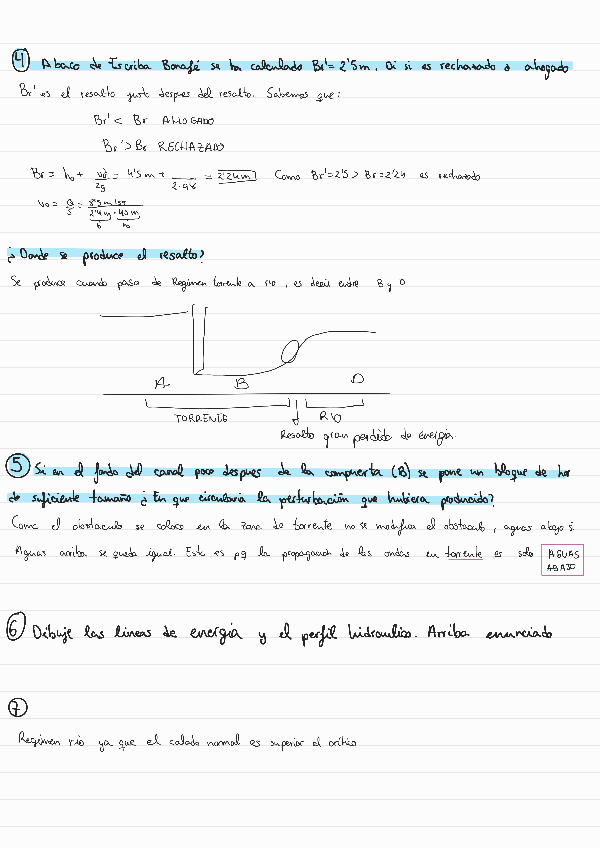 4 Abaco de Escriba Bonafé se ha calculado Br'= 2'5m. Di si es rechazado o ahogado
Br' es el resalto justo despues del resalto. Sabemos que:
Br' < Br AHOGADO
Br' > Br RECHAZADO
Br = ho + Vo²/2g = 4'5 m + /2·9'8 = 2'24 m Como Br'=2'5 > Br=2'24 es rechazado
Vo = Q/S =
b ho
¿Donde se produce el resalto?
Se produce cuando pasa de Regimen torrente a rio, es decir entre B y D
A B D
TORRENTE RIO
Resalto gran perdida de energia.
5 Si en el fondo del canal poco despues de la compuerta (B) se pone un bloque de hor
de suficiente tamaño ¿En que circularia la perturbación que hubiera producido?
Como el obstaculo se coloca en la zona de torrente no se modifica el obstaculo, aguas abajo si.
Aguas arriba se queda igual. Esto es pq la propagacion de las ondas en torrente es solo AGUAS
ABAJO
6 Dibuje las lineas de energía y el perfil hidraulico. Arriba enunciado
7
Regimen rio ya que el calado normal es superior al critico